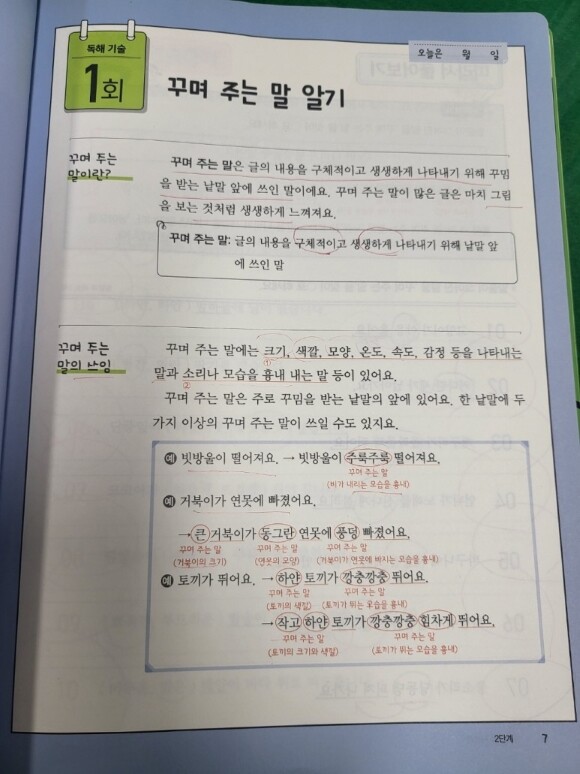 독해 기술
1회
오늘은 월 일
꾸며 주는 말 알기
꾸며 주는
말이란?
꾸며 주는 말은 글의 내용을 구체적이고 생생하게 나타내기 위해 꾸밈
을 받는 낱말 앞에 쓰인 말이에요. 꾸며 주는 말이 많은 글은 마치 그림
을 보는 것처럼 생생하게 느껴져요.
꾸며 주는 말: 글의 내용을 구체적이고 생생하게 나타내기 위해 낱말 앞
에 쓰인 말
꾸며 주는
말의 쓰임
꾸며 주는 말에는 크기, 색깔, 모양, 온도, 속도, 감정 등을 나타내는
①
말과 소리나 모습을 흉내 내는 말 등이 있어요.
②
꾸며 주는 말은 주로 꾸밈을 받는 낱말의 앞에 있어요. 한 낱말에 두
가지 이상의 꾸며 주는 말이 쓰일 수도 있지요.
예 빗방울이 떨어져요. → 빗방울이 주룩주룩 떨어져요.
꾸며 주는 말
(비가 내리는 모습을 흉내)
예 거북이가 연못에 빠졌어요.
→ 큰 거북이가 둥그란 연못에 풍덩 빠졌어요.
꾸며 주는 말 꾸며 주는 말 꾸며 주는 말
(거북이의 크기) (연못의 모양) (거북이가 연못에 빠지는 모습을 흉내)
예 토끼가 뛰어요. → 하얀 토끼가 깡충깡충 뛰어요.
꾸며 주는 말 꾸며 주는 말
(토끼의 색깔) (토끼가 뛰는 모습을 흉내)
→ 작고 하얀 토끼가 깡충깡충 힘차게 뛰어요.
꾸며 주는 말 꾸며 주는 말
(토끼의 크기와 색깔) (토끼가 뛰는 모습을 흉내)
2단계 7